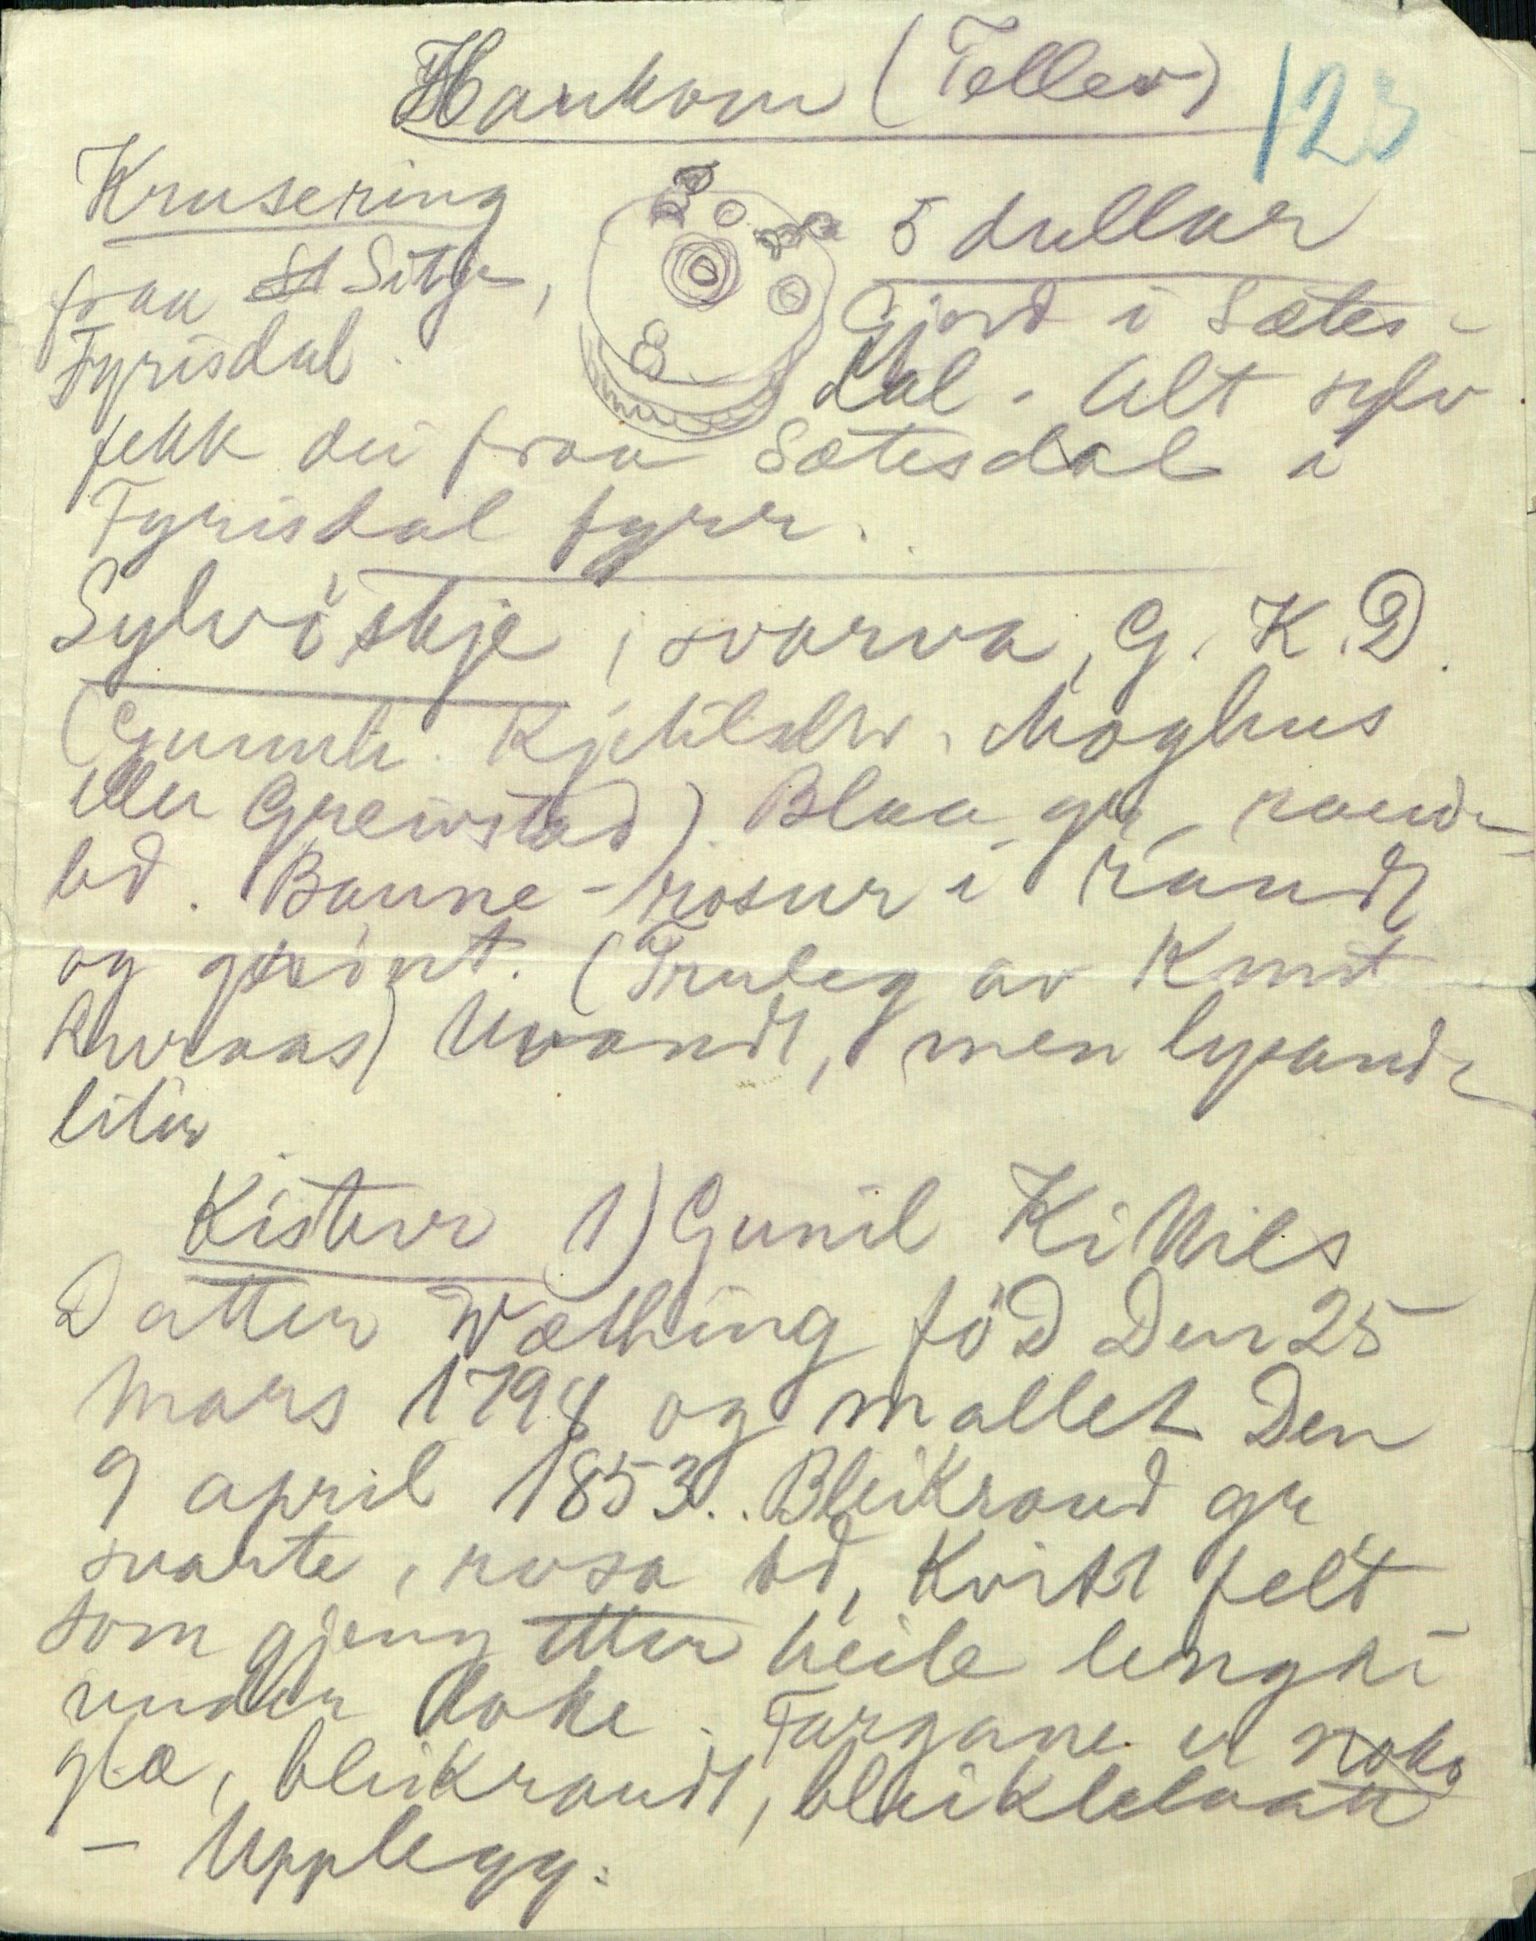 Haukom (Tellev) 123
Krusering
fraa Sitje,
Fyrisdal.
5 dullar
Gjord i Sætes-
dal. Alt sylv
fekk dei fraa Sætesdal i
Fyrisdal fyrr.
Sylvöskje, svarva, G. K. D.
(Gunnh. Kjetilsdtr. Moghus
eller Greivstad). Blaa gr, raud
bd. Baune-rosur i raudt
og grönt. (Truleg av Knut
) Uvandt, men lysande
liter
Kistur 1) Gunil KitNils
Datter Wæthing föD Den 25
Mars 1794 og mallet Den
9 april 1853.. Bleikraud gr
svarte, rosa bd, Kvitt felt
som gjeng etter heile lengdi
under loke. Fargane er noko
glæ, bleikraudt, bleikblaatt
- Upplegg: